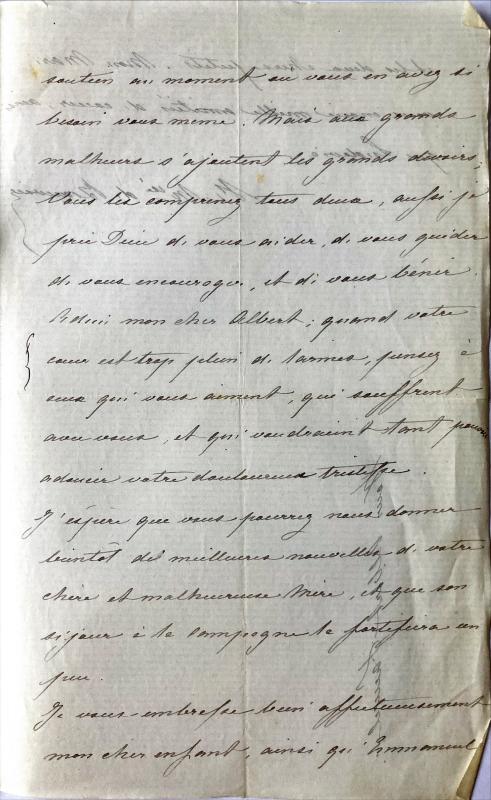 soutien au moment ou vous en avez si
besoin vous même. Mais aux grands
malheurs s'ajoutent les grands devoirs;
Vous les comprenez tous deux, aussi je
prie Dieu de vous aider, de vous guider
de vous encourager, et de vous bénir.
Adieu mon cher Albert; quand votre
cœur est trop plein de larmes, pensez à
ceux qui vous aiment, qui souffrent
avec vous, et qui voudraient tant pouvoir
adoucir votre douloureuse tristesse.
J'espère que vous pourrez nous donner
bientôt de meilleures nouvelles de votre
chère et malheureuse Mère, et que son
séjour à la campagne la fortifiera un
peu.
Je vous embrasse bien affectueusement
mon cher enfant, ainsi qu'Emmanuel